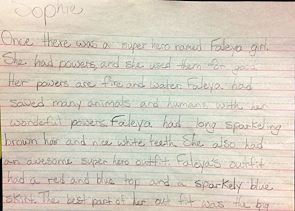 Sophie
Once there was a super hero named Faleya girl.
She had powers, and she used them for good.
Her powers are fire and water. Faleya had
saved many animals and humans with her
wonderful powers. Faleya had long sparkeling
brown hair and nice white teeth. She also had
an awesome super hero outfit. Faleya's outfit
had a red and blue top and a sparkely blue
skirt. The best part of her out fit was the big